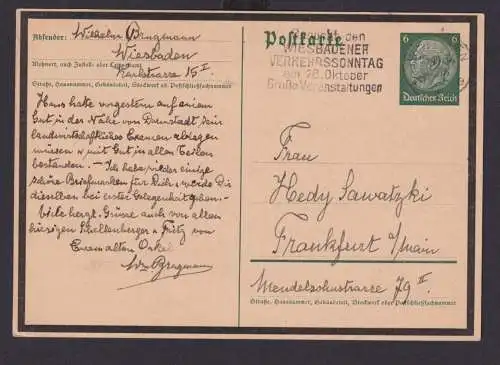 Absender: Wilhelm Brugmann
Wiesbaden
Wohnort, auch Zustell- oder Leitpostamt
Karlstrasse 15 I.
Straße, Hausnummer, Gebäudeteil, Stockwerk od. Postschließfachnummer
Hans hatte vorgestern auf einem
Gut in der Nähe von Darmstadt sein
landwirtschaftliches Examen ablegen
müssen u mit Gut in allen Teilen
bestanden. – Ich habe wieder einige
schöne Briefmarken für Dich u werde Dir
dieselben bei erster Gelegenheit geben.
bitte herzl. Grüsse auch von allen
hiesigen Schellenberger u Fritz von
Eurem alten Onkel
Wm Brugmann
Postkarte
den
WIESBADENER
VERKEHRSSONNTAG
am 28. Oktober
Große Veranstaltungen
6 6
Deutsches Reich
Frau
Hedy Sawatzki
Frankfurt a/main
Mendelssohnstrasse 79 II.
Straße, Hausnummer, Gebäudeteil, Stockwerk oder Postschließfachnummer